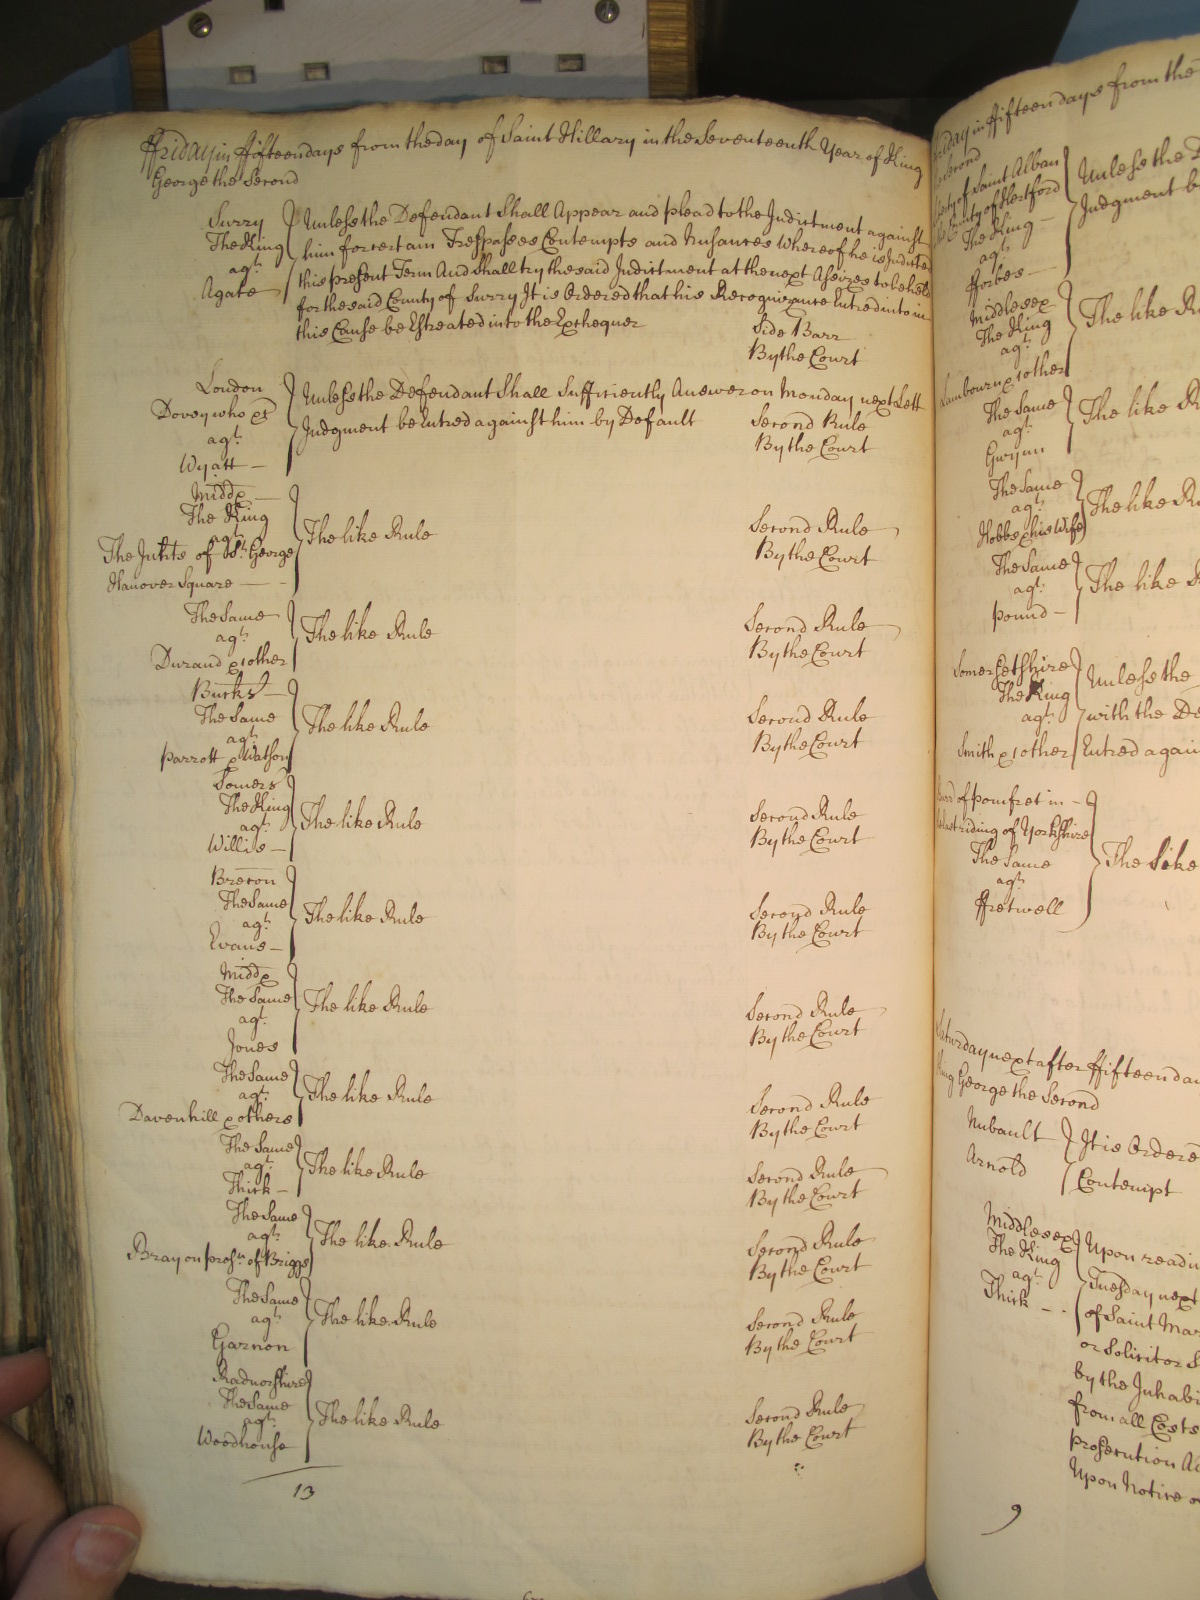 ffriday in ffifteen days from the day of Saint Hillary in the Seventeenth Year of King
George the Second
Surry
The King
agt.
Agate
Unless the Defendant Shall Appear and plead to the Indictment against
him for certain Trespasses Contempts and Nusances Whereof he is Indicted
this present Term And Shall try the said Indictment at the next Assizes to be held
for the said County of Surry It is Ordered that his Recognizance Entred into in
this Cause be Estreated into the Exchequer
Side Barr
By the Court
London
Dovey who &c
agt.
Wyatt
Unless the Defendant Shall Sufficiently Answer on Monday next Lett
Judgment be Entred against him by Default
Second Rule
By the Court
Middx
The King
agt.
The Inhts of St. George
Hanover Square
The like Rule
Second Rule
By the Court
The Same
agt.
Durand & other
The like Rule
Second Rule
By the Court
Bucks
The Same
agt.
Parrott & Watson
The like Rule
Second Rule
By the Court
Somers
The King
agt.
Willis
The like Rule
Second Rule
By the Court
Brecon
The Same
agt.
Evans
The like Rule
Second Rule
By the Court
Middx
The Same
agt.
Jones
The like Rule
Second Rule
By the Court
The Same
agt.
Davenhill & others
The like Rule
Second Rule
By the Court
The Same
agt.
Thick
The like Rule
Second Rule
By the Court
The Same
agt.
Bray on prosn. of Briggs
The like Rule
Second Rule
By the Court
The Same
agt.
Garnon
The like Rule
Second Rule
By the Court
Radnorshire
The Same
agt.
Woodhouse
The like Rule
Second Rule
By the Court
13
in ffifteen days from the
Second
of Saint Alban
County of Hertford
The King
agt.
fforbes
Unless the
Judgment
Middlesex
The King
agt.
Lambourn & other
The like
The Same
agt.
Gwynn
The like
The Same
agt.
Hobbs & his Wife
The like
The Same
agt.
Pound
The like
Somersetshire
The King
agt.
Smith & other
Unless the
with the
Entred
of Pomfret in
riding of Yorkshire
The Same
agt.
ffretwell
The like
Saturday next after ffifteen
King George the Second
Nubault
Arnold
It is Ordered
Contempt
Middlesex
The King
agt.
Thick
Upon
Tuesday next
of Saint
or Solicitor
by the
from all Costs
prosecution
Upon Notice
9